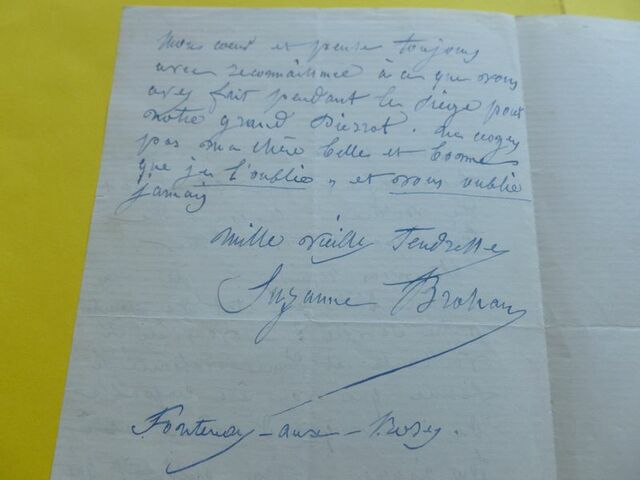 mon coeur et pense toujours
avec reconnaissance à ce que vous
avez fait pendant le siège pour
notre grand Pierrot. Ne croyez
pas ma chère belle et bonne
que je l'oublie, et vous oublie
jamais
Mille vieilles tendresses
Suzanne Brohan
Fontenay-aux-Roses.